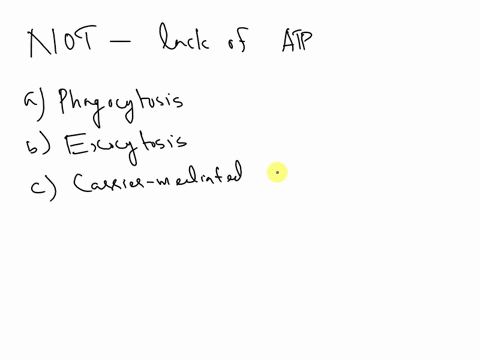 NOT - lack of ATP
a) Phagocytosis
b) Exocytosis
c) Carrier-mediated